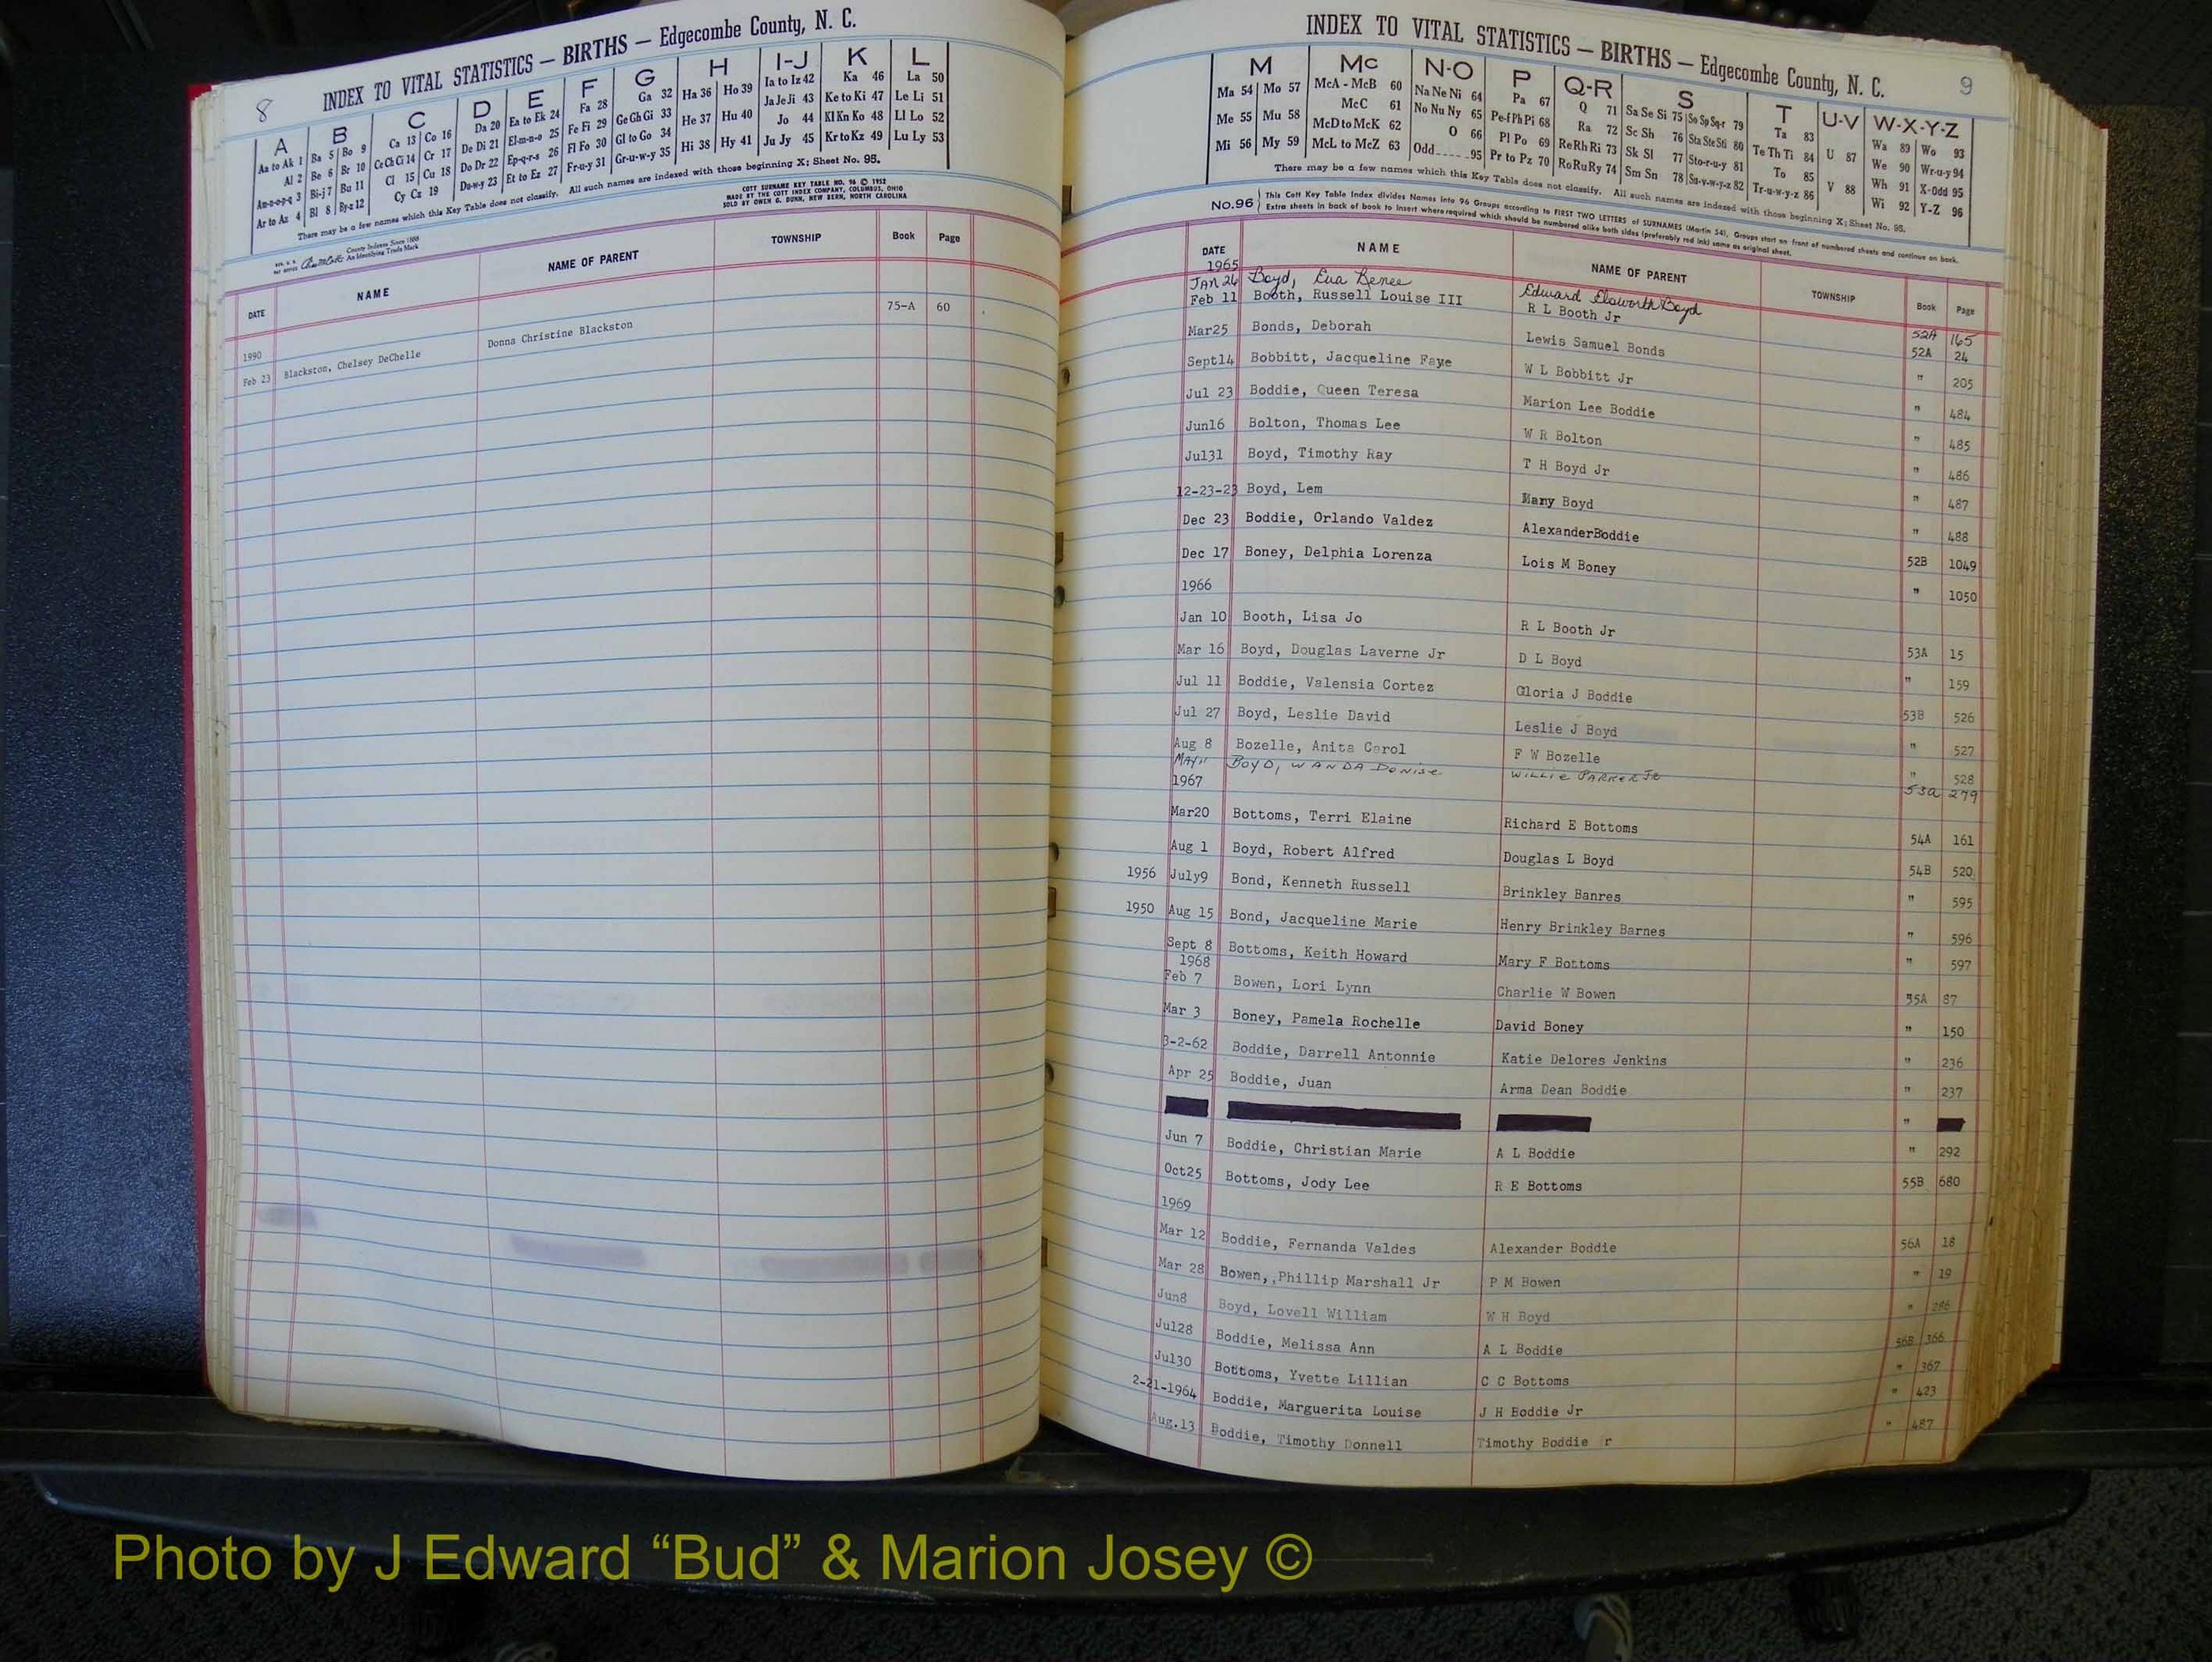 8
INDEX TO VITAL STATISTICS — BIRTHS — Edgecombe County, N. C.
A B C D E F G H I-J K L
Aa to Ak 1 Ba 5 Bo 9 Ca 13 Co 16 Da 20 Ea to Ek 24 Fa 28 Ga 32 Ha 36 Ho 39 Ia to Iz 42 Ka 46 La 50
Al 2 Be 6 Br 10 Ce Ch Ci 14 Cr 17 De Di 21 El-m-n-o 25 Fe Fi 29 Ge Gh Gi 33 He 37 Hu 40 Ja Je Ji 43 Ke to Ki 47 Le Li 51
Am-n-o-p-q 3 Bi-j 7 Bu 11 Cl 15 Cu 18 Do Dr 22 Ep-q-r-s 26 Fl Fo 30 Gl to Go 34 Hi 38 Hy 41 Jo 44 Kl Kn Ko 48 Ll Lo 52
Ar to Az 4 Bl 8 By-z 12 Cy Cz 19 Du-w-y 23 Et to Ez 27 Fr-u-y 31 Gr-u-w-y 35 Ju Jy 45 Kr to Kz 49 Lu Ly 53
There may be a few names which this Key Table does not classify. All such names are indexed with those beginning X; Sheet No. 95.
COTT SURNAME KEY TABLE NO. 96 © 1952
MADE BY THE COTT INDEX COMPANY, COLUMBUS, OHIO
SOLD BY OWEN G. DUNN, NEW BERN, NORTH CAROLINA
County Indexes Since 1888
An Identifying Trade Mark
DATE NAME NAME OF PARENT TOWNSHIP Book Page
1990
Feb 23 Blackston, Chelsey DeChelle Donna Christine Blackston 75-A 60
INDEX TO VITAL STATISTICS — BIRTHS — Edgecombe County, N. C.
9
M Mc N-O P Q-R S T U-V W-X-Y-Z
Ma 54 Mo 57 McA - McB 60 Na Ne Ni 64 Pa 67 Q 71 Sa Se Si 75 So Sp Sq-r 79 Ta 83 U 87 Wa 89 Wo 93
Me 55 Mu 58 McC 61 No Nu Ny 65 Pe-f Ph Pi 68 Ra 72 Sc Sh 76 Sta Ste Sti 80 Te Th Ti 84 V 88 We 90 Wr-u-y 94
Mi 56 My 59 McD to McK 62 O 66 Pl Po 69 Re Rh Ri 73 Sk Sl 77 Sto-r-u-y 81 To 85 Wh 91 X-Odd 95
McL to McZ 63 Odd 95 Pr to Pz 70 Ro Ru Ry 74 Sm Sn 78 Su-v-w-y-z 82 Tr-u-w-y-z 86 Wi 92 Y-Z 96
There may be a few names which this Key Table does not classify. All such names are indexed with those beginning X; Sheet No. 95.
No.96 This Cott Key Table Index divides Names into 96 Groups according to FIRST TWO LETTERS of SURNAMES (Martin 54). Groups start on front of numbered sheets and continue on back.
Extra sheets in back of book to insert where required which should be numbered alike both sides (preferably red ink) same as original sheet.
DATE NAME NAME OF PARENT TOWNSHIP Book Page
1965
JAN 26 Boyd, Eva Renee Edward Elsworth Boyd 52A 165
Feb 11 Booth, Russell Louise III R L Booth Jr 52A 24
Mar25 Bonds, Deborah Lewis Samuel Bonds " 205
Sept14 Bobbitt, Jacqueline Faye W L Bobbitt Jr " 484
Jul 23 Boddie, Queen Teresa Marion Lee Boddie " 485
Jun16 Bolton, Thomas Lee W R Bolton " 486
Jul31 Boyd, Timothy Ray T H Boyd Jr " 487
12-23-23 Boyd, Lem Mary Boyd " 488
Dec 23 Boddie, Orlando Valdez AlexanderBoddie 52B 1049
Dec 17 Boney, Delphia Lorenza Lois M Boney " 1050
1966
Jan 10 Booth, Lisa Jo R L Booth Jr 53A 15
Mar 16 Boyd, Douglas Laverne Jr D L Boyd " 159
Jul 11 Boddie, Valensia Cortez Gloria J Boddie 53B 526
Jul 27 Boyd, Leslie David Leslie J Boyd " 527
Aug 8 Bozelle, Anita Carol F W Bozelle " 528
MAY 11 Boyd, WANDA Denise Willie Parker Jr 53a 279
1967
Mar20 Bottoms, Terri Elaine Richard E Bottoms 54A 161
Aug 1 Boyd, Robert Alfred Douglas L Boyd 54B 520
1956 July9 Bond, Kenneth Russell Brinkley Banres " 595
1950 Aug 15 Bond, Jacqueline Marie Henry Brinkley Barnes " 596
Sept 8 Bottoms, Keith Howard Mary F Bottoms " 597
1968
Feb 7 Bowen, Lori Lynn Charlie W Bowen 55A 87
Mar 3 Boney, Pamela Rochelle David Boney " 150
3-2-62 Boddie, Darrell Antonnie Katie Delores Jenkins " 236
Apr 25 Boddie, Juan Arma Dean Boddie " 237
"
Jun 7 Boddie, Christian Marie A L Boddie " 292
Oct25 Bottoms, Jody Lee R E Bottoms 55B 680
1969
Mar 12 Boddie, Fernanda Valdes Alexander Boddie 56A 18
Mar 28 Bowen,,Phillip Marshall Jr P M Bowen " 19
Jun8 Boyd, Lovell William W H Boyd " 286
Jul28 Boddie, Melissa Ann A L Boddie 56B 366
Jul30 Bottoms, Yvette Lillian C C Bottoms " 367
2-21-1964 Boddie, Marguerita Louise J H Boddie Jr " 423
Aug.13 Boddie, Timothy Donnell Timothy Boddie r " 487
Photo by J Edward “Bud” & Marion Josey ©